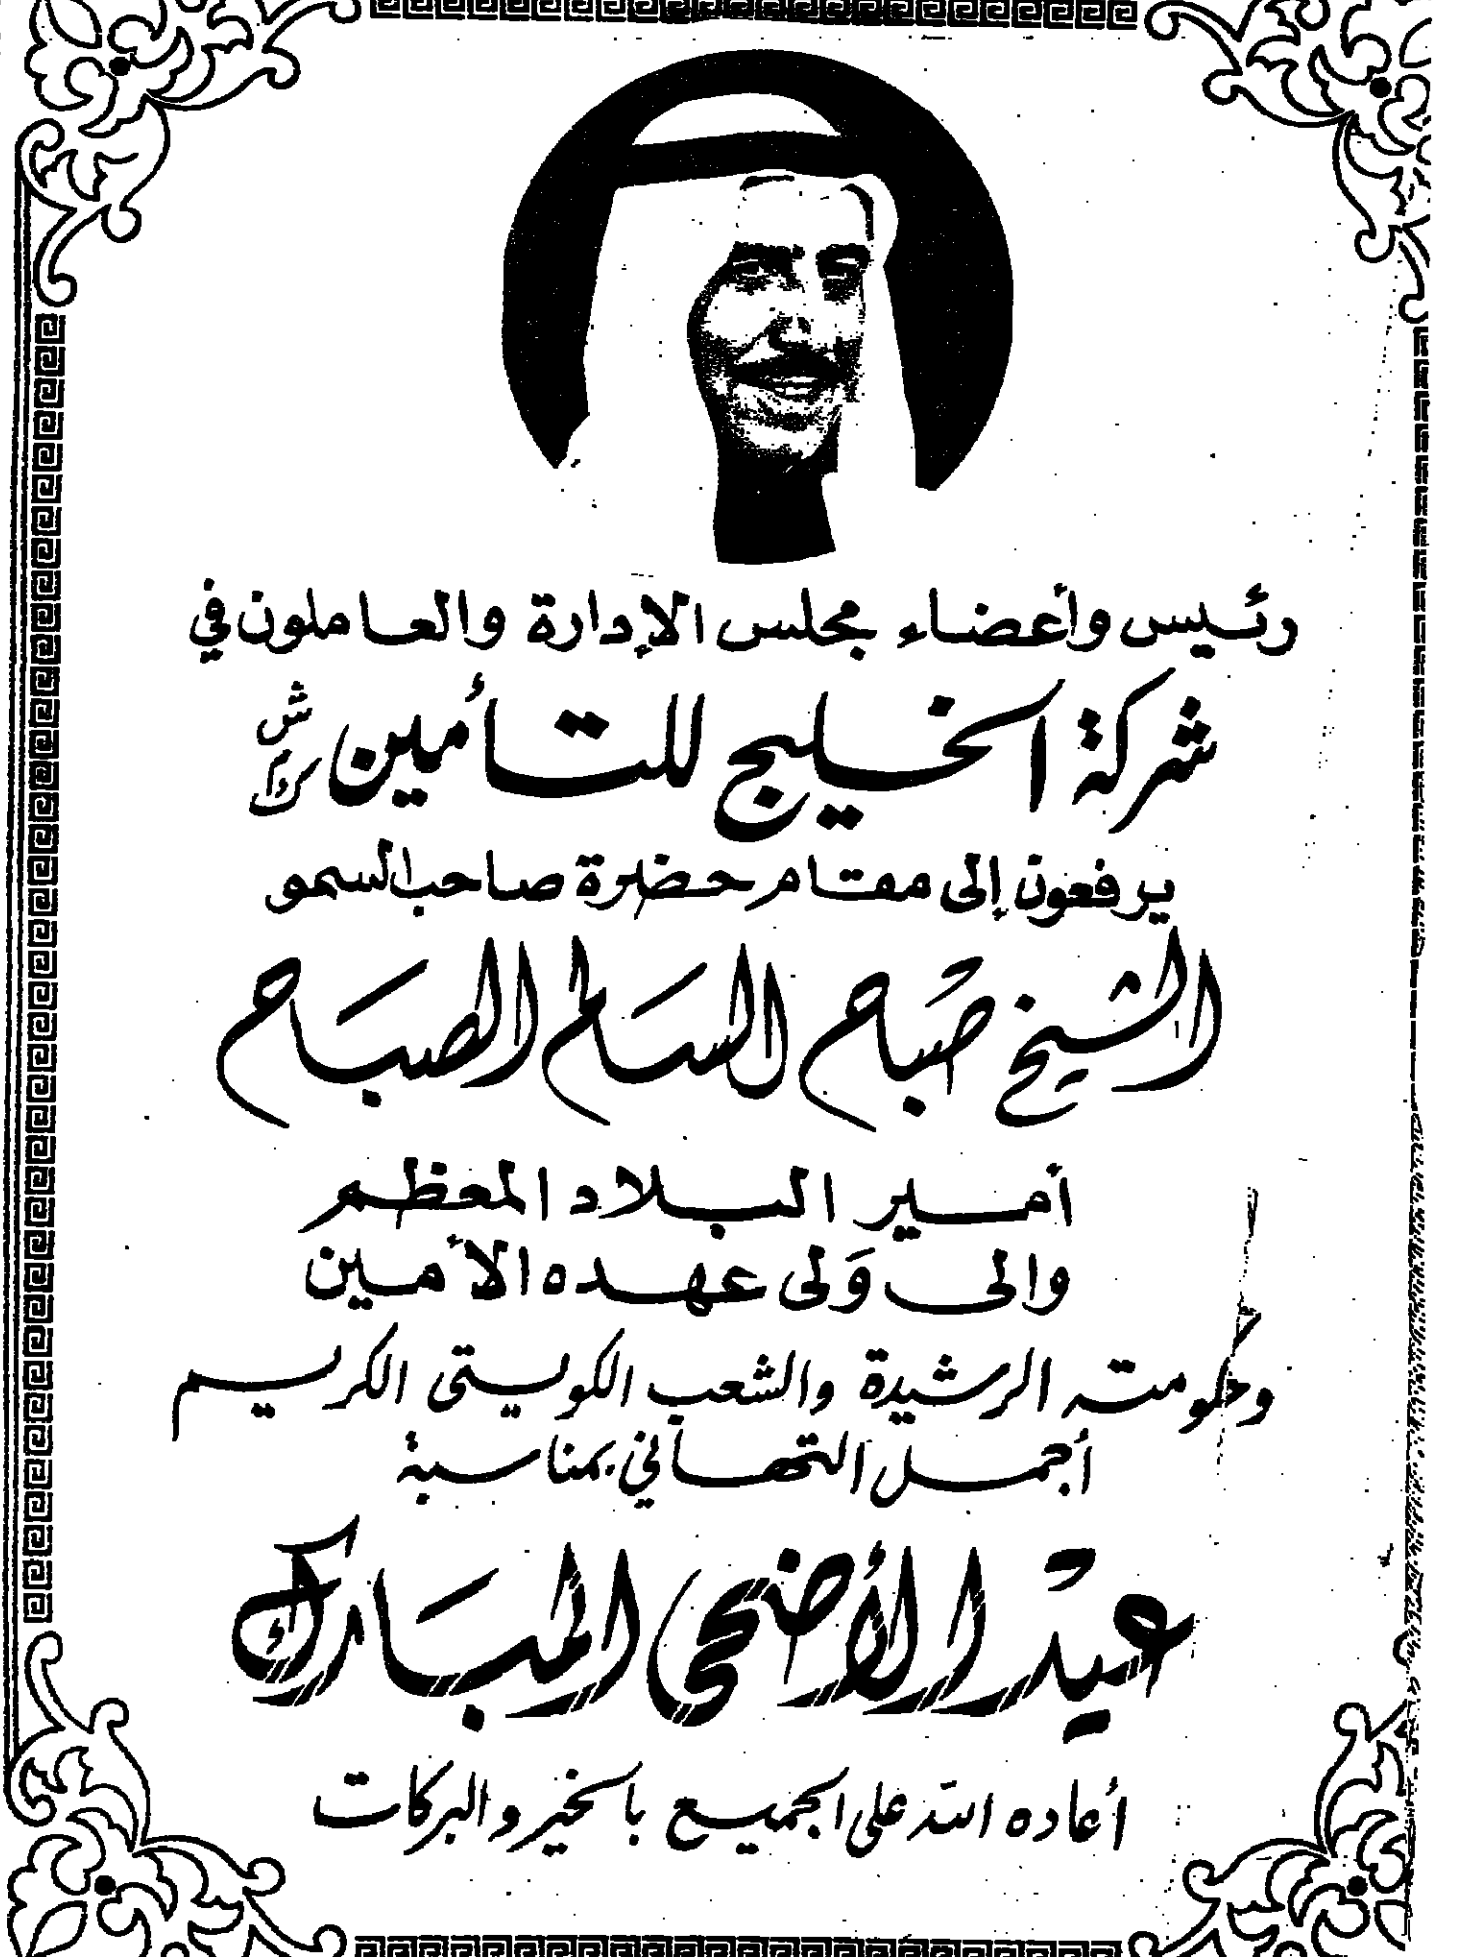 رئيس وأعضاء مجلس الإدارة والعاملون في
شركة الخليج للتأمين ش.م.ك
يرفعون إلى مقام حضرة صاحب السمو
الشيخ صباح السالم الصباح
أمير البلاد المعظم
والى وَلى عهده الأمين
وحكومته الرشيدة والشعب الكويتي الكريم
أجمل التهاني بمناسبة
عيد الأضحى المبارك
أعاده الله على الجميع بالخير والبركات